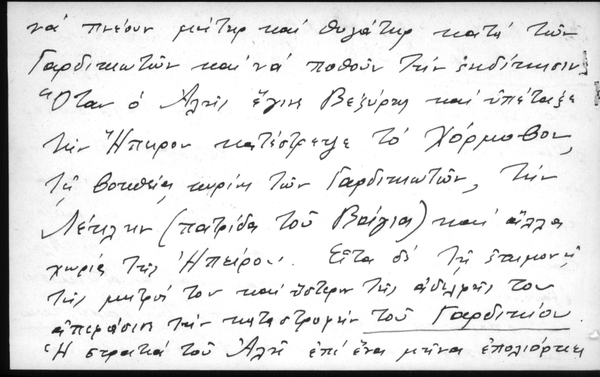 νά πνέουν μήτηρ καί θυγάτηρ κατά τῶν
Γαρδικιωτῶν καί νά ποθοῦν τήν ἐκδίκησιν
Ὅταν ὁ Ἀλῆς ἔγινε Βεζύρης καί ὑπέταξε
τήν Ἤπειρον κατέστρεψε τό Χόρμοβον,
τῇ βοηθείᾳ κυρίως τῶν Γαρδικιωτῶν, τήν
Λέκλην (πατρίδα τοῦ Βάγια) καί ἄλλα
χωρία τῆς Ἠπείρου. Εἶτα δέ τῇ ἐπιμονῇ
τῆς μητρός του καί ὕστερον τῆς ἀδελφῆς του
ἀπεφάσισε τήν καταστροφήν τοῦ Γαρδικίου.
Ἡ στρατιά τοῦ Ἀλῆ ἐπί ἕνα μῆνα ἐπολιόρκει